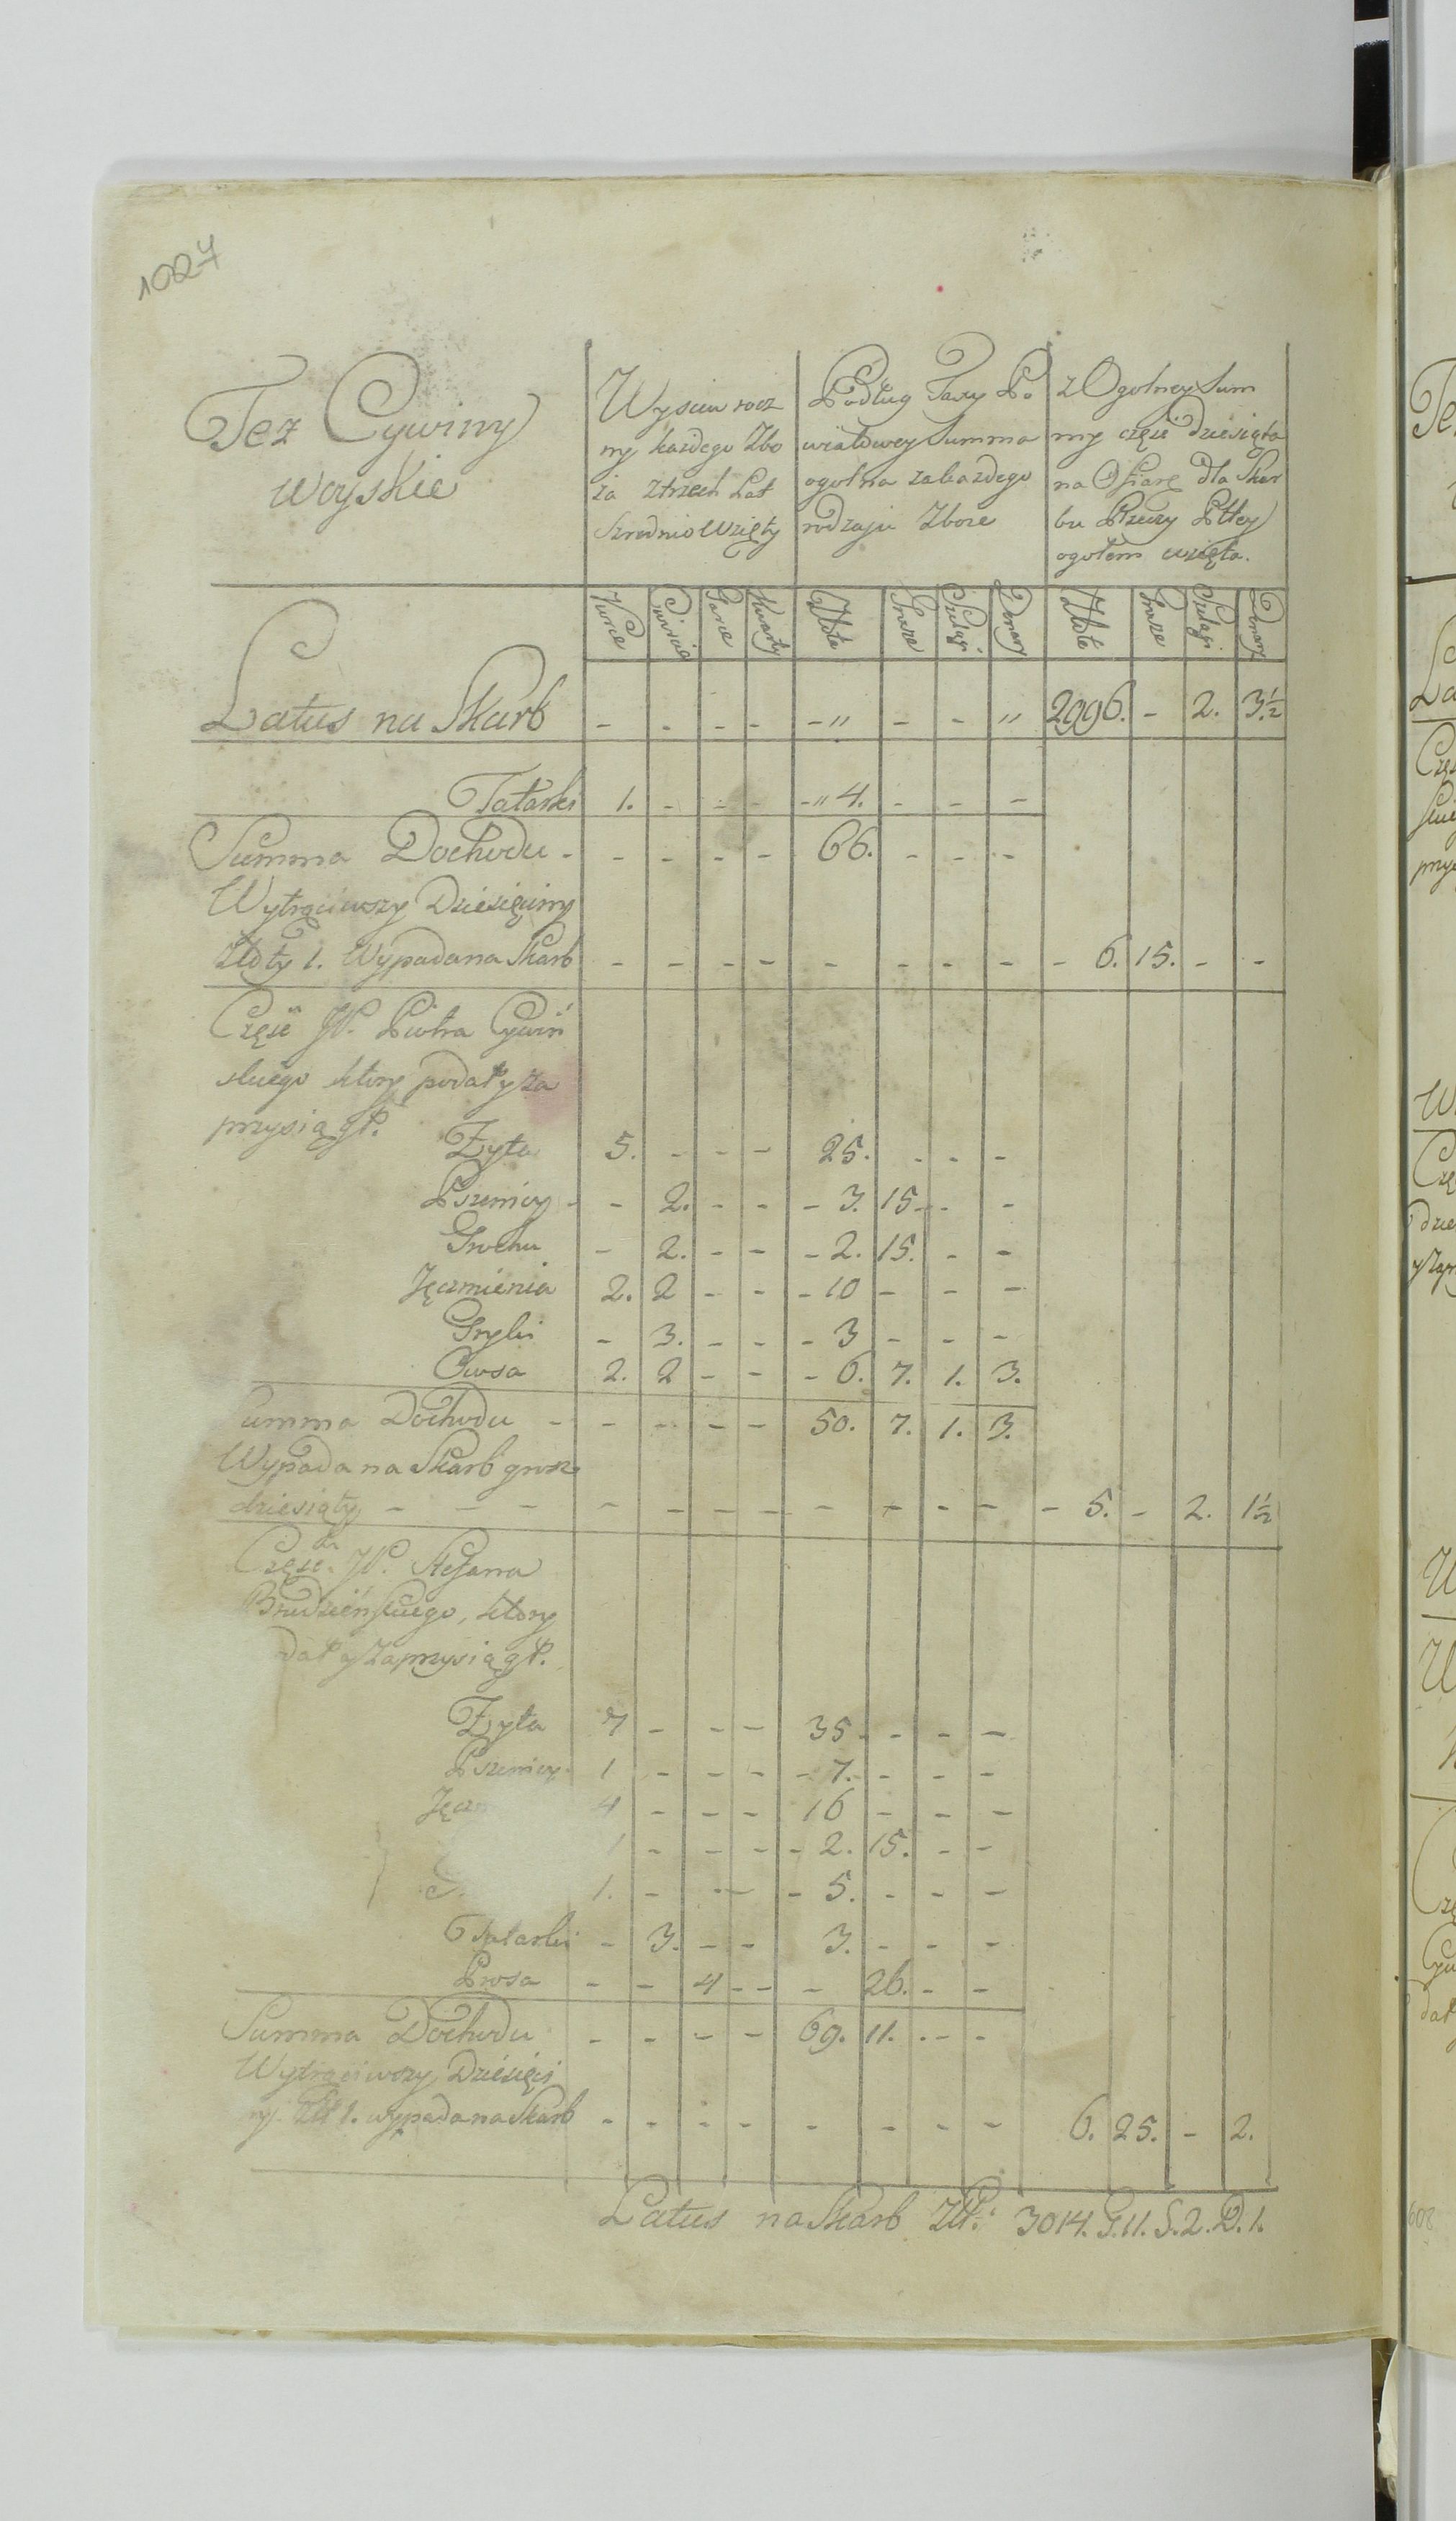 1027
Też Cywiny
woyskie
Wysiew rocz
ny każdego Zbo
ża z trzech Lat
Szrednio Wzięty
Podług Taxy Po
wiatowey Summa
ogolna za każdego
rodzaju Zboże
z Ogolney Sum
my częsć dziesiąta
na Ofiarę dla Skar
bu Rzeczy Pltey
ogołem wzięta.
Korce Cwiercie Garce Kwarty Złote Grosze Szelągi Denary Złote Grosze Szelągi Denary
Latus na Skarb - - - - - " - - " 2996. - 2. 3½
Tatarki 1. - - - - " 4. - - -
Summa Dochodu - - - - - 66. - - -
Wytrąciwszy Dziesięciny
Złoty 1. Wypada na Skarb - - - - - - - - - 6. 15. - -
Częsć JP. Piotra Cywiń
skiego ktory podał y za
przysiągł.
Żyta 5. - - - 25. - - -
Pszenicy - - 2. - - - 3. 15 - - -
Grochu - 2. - - - 2. 15. - -
Jęczmienia 2. 2 - - - 10 - - -
Gryki - 3. - - - 3 - - -
Owsa 2. 2 - - - 6. 7. 1. 3.
umma Dochodu - - - - - 50. 7. 1. 3.
Wypada na Skarb grosz
dziesiąty - - - - - - - - - - - - 5. - 2. 1½
Częsć JP. Stefana
Brudzieńskiego, ktory
dał y zaprzysiągł.
Żyta 7 - - - 35. - - -
Pszenicy - 1 - - - - 7. - - -
Jęcz 4 - - - 16 - - -
1 - - - - 2. 15. - -
1. - - - - 5. - - -
Tatarki - 3. - - 3. - - -
Prosa - - 4 - - - 26. - -
Summa Dochodu - - - - 69. 11. - -
Wytrąciwszy Dziesięci
ny. Zł 1. wypada na Skarb - - - - - - - - 6. 25. - 2.
Latus na Skarb Złł: 3014. G. 11. S. 2. D. 1.